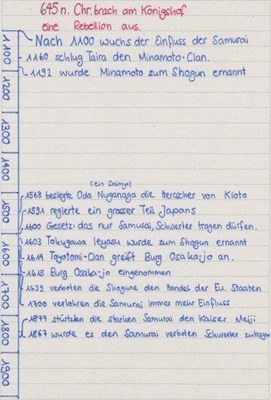 645 n. Chr. brach am Königshof
eine Rebellion aus.
Nach 1100 wuchs der Einfluss der Samurai
1160 schlug Taira den Minamoto-Clan.
1192 wurde Minamoto zum Shogun ernannt
(ein Daimyo)
1568 besiegte Oda Nuganaga die Herrscher von Kioto
1591 regierte ein grosser Teil Japans
1600 Gesetz: das nur Samurai, Schwerter tragen dürfen.
1603 Tokugawa Ieyasu wurde zum Shogun ernannt
1614 Toyotomi-Clan greift Burg Osaka-jo an.
1615 Burg Osaka-jo eingenommen
1639 verboten die Shogune den Handel der Eu. Staaten
1700 verlohren die Samurai immer mehr Einfluss
1877 stürtzten die starken Samurai den Kaiser Meiji
1867 wurde es den Samurai verboten Schwerter zutragen
1100
1200
1300
1400
1500
1600
1700
1800
1900